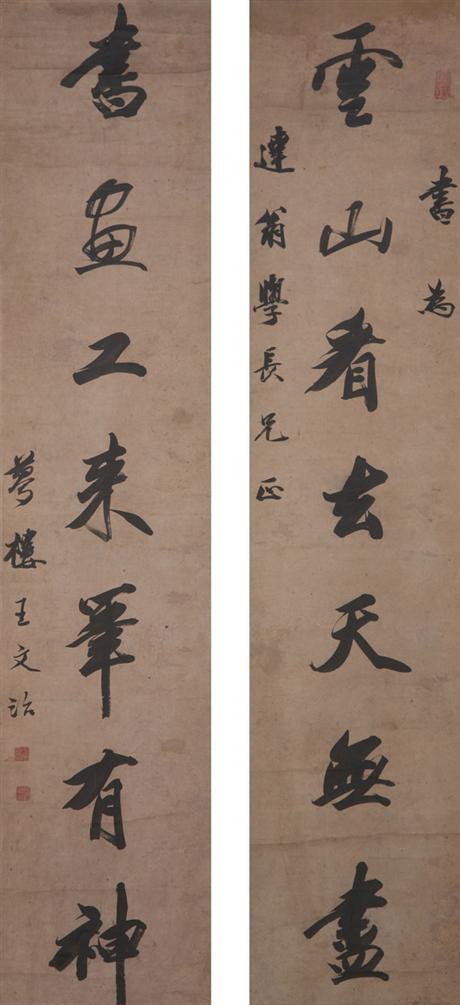 書為
雲山看去天無盡
達翁學長兄正
書畫工來筆有神
夢樓王文治